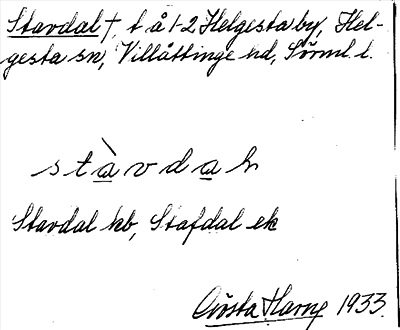 Stavdal †, t å 1-2 Helgesta by, Hel-
gesta sn, Villåttinge hd, Sörml. l.
stàvdal
Stavdal kb, Stafdal ek
Gösta Harne 1933.